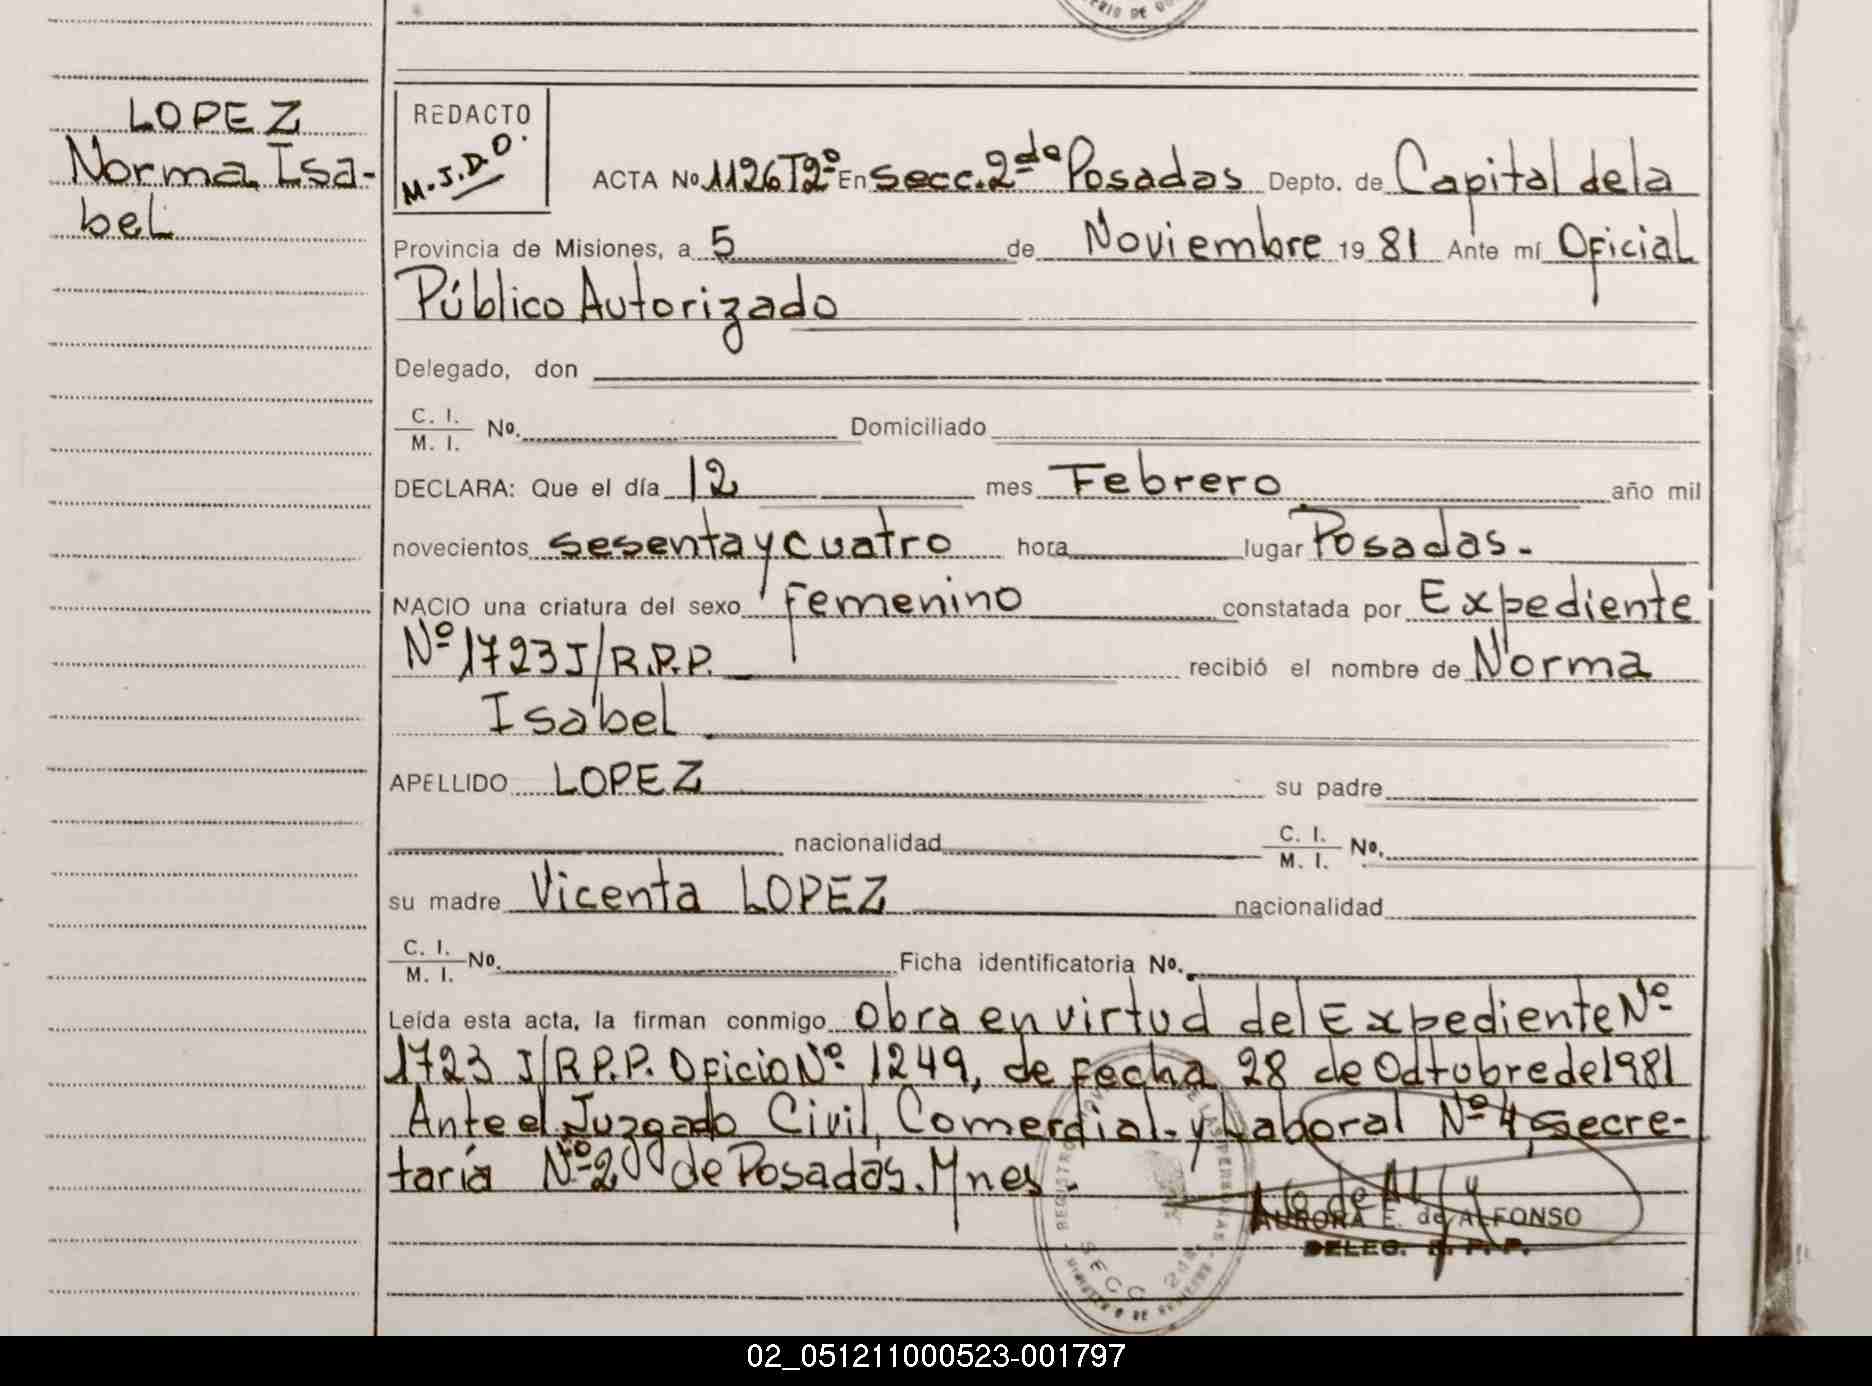 LOPEZ
Norma Isa-
bel
REDACTO
M.J.D.O.
ACTA No 1126 Tº2º En Secc. 2da Posadas Depto. de Capital de la
Provincia de Misiones, a 5 de Noviembre 19 81 Ante mí Oficial
Público Autorizado
Delegado, don
C. I.
M. I. No. Domiciliado
DECLARA: Que el día 12 mes Febrero año mil
novecientos sesenta y cuatro hora lugar Posadas.-
NACIO una criatura del sexo femenino constatada por Expediente
Nº 1723 J/R.P.P. recibió el nombre de Norma
Isabel
APELLIDO LOPEZ su padre
nacionalidad C. I.
M. I. No.
su madre Vicenta LOPEZ nacionalidad
C. I.
M. I. No. Ficha identificatoria No.
Leída esta acta, la firman conmigo obra en virtud del Expediente Nº
1723 J/R.P.P. Oficio Nº 1249, de fecha 28 de Octubre de 1981
Ante el Juzgado Civil, Comercial y Laboral Nº 4, Secre-
taría Nº 2 de Posadas. Mnes.
AURORA E. de ALFONSO
DELEG. R. P. P.
SECC 2da
02_051211000523-001797